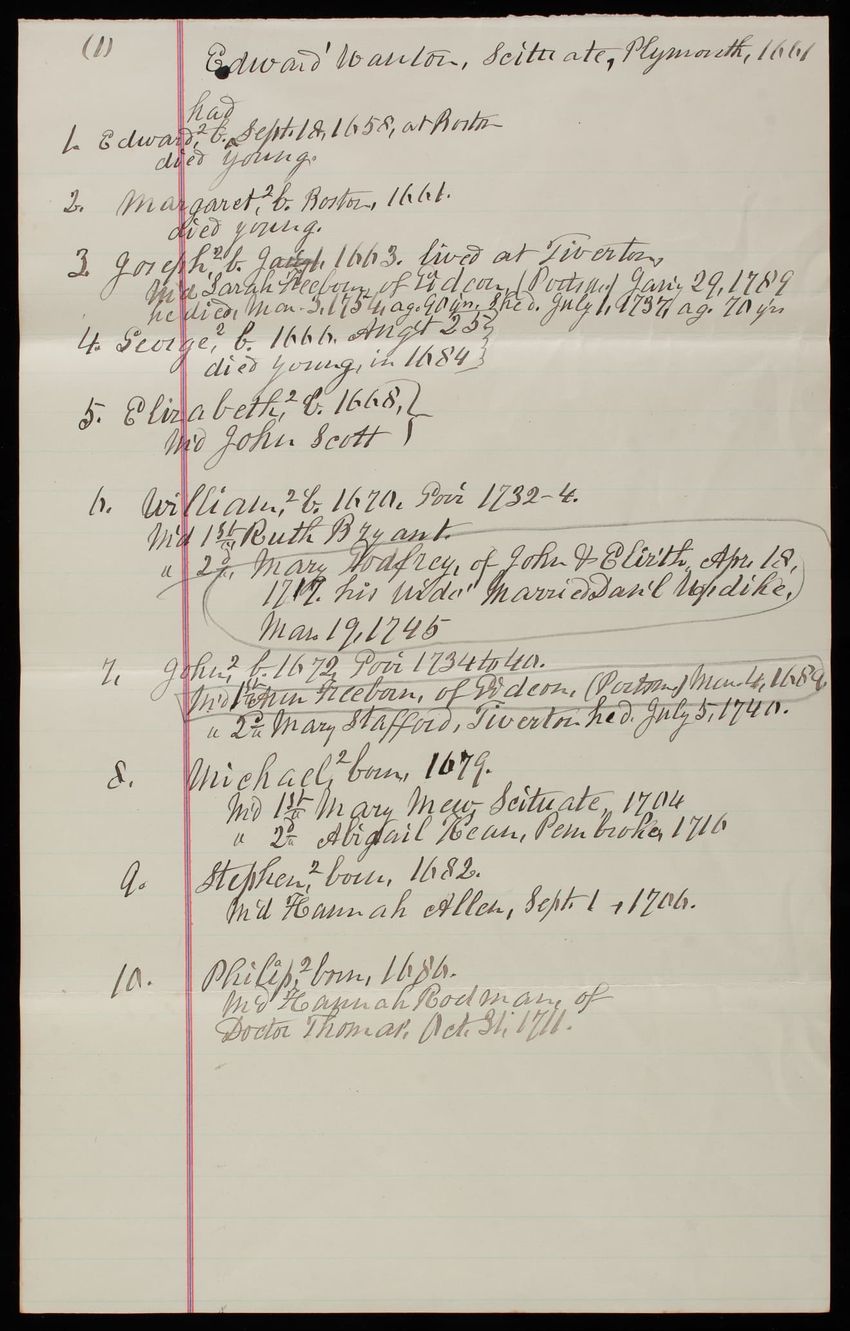 (1)
Edward Wanton, Scituate, Plymouth, 1661
had
1. Edward,² b. Sept. 18, 1658, at Boston
died young.
2. Margaret,² b. Boston, 1661.
died young.
3. Joseph,² b. 1663. lived at Tiverton,
M'd Sarah Freeborn, of Gideon, (Portsm.) Jan'y 29, 1789
he died, Mar. 3, 1754, ag. 90 yrs. She d. July 1, 1737, ag. 70 yrs
4. George,² b. 1666. Augst 25
died young, in 1684
5. Elizabeth,² b. 1668,
M'd John Scott
6. William,² b. 1670. Gov'r 1732-4.
M'd 1st Ruth Bryant.
" 2d, Mary Godfrey, of John & Eliz'th, Apr. 18,
1717. his wido' Married Dan'l Updike,
Mar. 19, 1745
7. John,² b. 1672, Gov'r 1734 to 40.
M'd 1st Ann Freeborn, of Gideon, (Portsm.) Mar. 4, 1689,
" 2d Mary Stafford, Tiverton he d. July 5, 1740.
8. Michael,² born, 1679.
M'd 1st Mary Mew, Scituate, 1704
" 2d Abigail Kean, Pembroke, 1716
9. Stephen,² born, 1682.
M'd Hannah Allen, Sept. 1, 1706.
10. Philip,² born, 1686.
M'd Hannah Rodman, of
Doctor Thomas. Oct. 31, 1711.